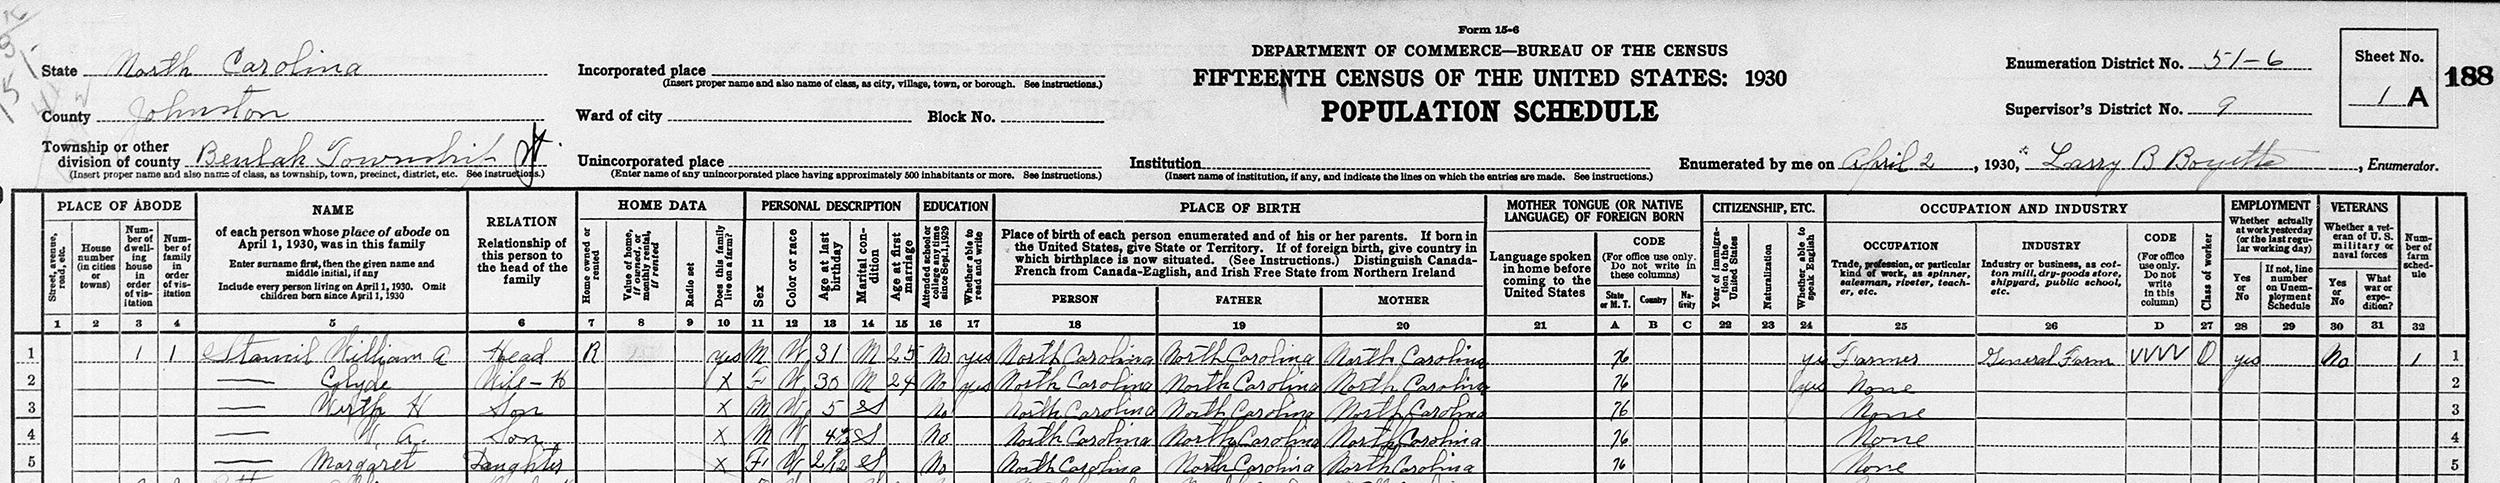 Form 15-6
DEPARTMENT OF COMMERCE—BUREAU OF THE CENSUS
FIFTEENTH CENSUS OF THE UNITED STATES: 1930
POPULATION SCHEDULE
State North Carolina
County Johnston
Township or other division of county Beulah Township
(Insert proper name and also name of class, as township, town, precinct, district, etc. See instructions.)
Incorporated place
(Insert proper name and also name of class, as city, village, town, or borough. See instructions.)
Ward of city Block No.
Unincorporated place
(Enter name of any unincorporated place having approximately 500 inhabitants or more. See instructions.)
Institution
(Insert name of institution, if any, and indicate the lines on which the entries are made. See instructions.)
Enumeration District No. 51-6
Supervisor's District No. 9
Sheet No.
1 A
188
Enumerated by me on April 2, 1930, Larry B Boyette, Enumerator.
PLACE OF ABODE
Street, avenue, road, etc.
House number (in cities or towns)
Number of dwelling house in order of visitation
Number of family in order of visitation
NAME
of each person whose place of abode on April 1, 1930, was in this family
Enter surname first, then the given name and middle initial, if any
Include every person living on April 1, 1930. Omit children born since April 1, 1930
RELATION
Relationship of this person to the head of the family
HOME DATA
Home owned or rented
Value of home, if owned, or monthly rental, if rented
Radio set
Does this family live on a farm?
PERSONAL DESCRIPTION
Sex
Color or race
Age at last birthday
Marital condition
Age at first marriage
EDUCATION
Attended school or college any time since Sept. 1, 1929
Whether able to read and write
PLACE OF BIRTH
Place of birth of each person enumerated and of his or her parents. If born in the United States, give State or Territory. If of foreign birth, give country in which birthplace is now situated. (See Instructions.) Distinguish Canada-French from Canada-English, and Irish Free State from Northern Ireland
PERSON FATHER MOTHER
MOTHER TONGUE (OR NATIVE LANGUAGE) OF FOREIGN BORN
Language spoken in home before coming to the United States
CODE
(For office use only. Do not write in these columns)
State or M. T. Country Nativity
CITIZENSHIP, ETC.
Year of immigration to the United States
Naturalization
Whether able to speak English
OCCUPATION AND INDUSTRY
OCCUPATION
Trade, profession, or particular kind of work, as spinner, salesman, riveter, teacher, etc.
INDUSTRY
Industry or business, as cotton mill, dry-goods store, shipyard, public school, etc.
CODE
(For office use only. Do not write in this column)
Class of worker
EMPLOYMENT
Whether actually at work yesterday (or the last regular working day)
Yes or No
If not, line number on Unemployment Schedule
VETERANS
Whether a veteran of U.S. military or naval forces
Yes or No
What war or expedition?
Number of farm schedule
1 2 3 4 5 6 7 8 9 10 11 12 13 14 15 16 17 18 19 20 21 A B C 22 23 24 25 26 D 27 28 29 30 31 32
1 1 1 Stancil William A Head R yes M W 31 M 25 No yes North Carolina North Carolina North Carolina 76 yes Farmer General Farm VVVV O yes No 1 1
2 — Clyde Wife-H X F W 30 M 24 No yes North Carolina North Carolina North Carolina 76 yes None 2
3 — H Son X M W 5 S No North Carolina North Carolina North Carolina 76 None 3
4 — W. A. Son X M W S No North Carolina North Carolina North Carolina 76 None 4
5 — Margaret Daughter X F W S No North Carolina North Carolina North Carolina 76 None 5